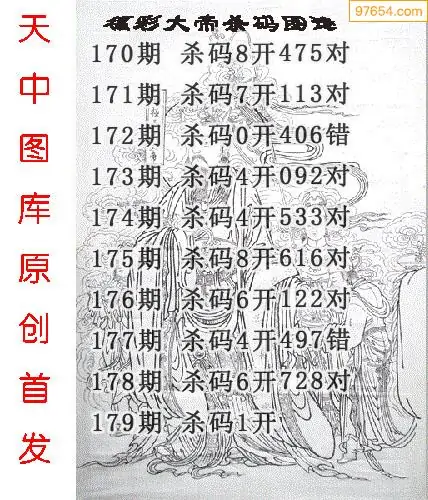 97654.com
福彩大帝杀码图谜
天中图库原创首发
170期 杀码8开475对
171期 杀码7开113对
172期 杀码0开406错
173期 杀码4开092对
174期 杀码4开533对
175期 杀码8开616对
176期 杀码6开122对
177期 杀码4开497错
178期 杀码6开728对
179期 杀码1开